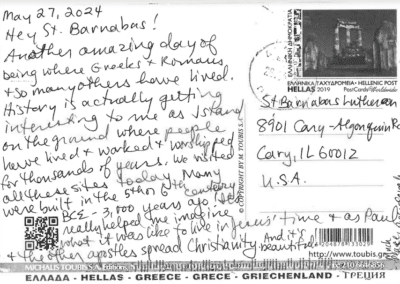 May 27, 2024
Hey St. Barnabas!
Another amazing day of
being where Greeks & Romans
& so many others have lived.
History is actually getting
interesting to me as I stand
on the ground where people
have lived & worked & worshipped
for thousands of years. We visited
all these sites today. Many
were built in the 5th or 6th century
BCE - 3,000 years ago. It's
really helped me imagine
what it was like to live in Jesus' time & as Paul
& the other apostles spread Christianity. And it's beautiful
ΕΛΛΗΝΙΚΗ ΔΗΜΟΚΡΑΤΙΑ
ΕΛΛΗΝΙΚΑ ΤΑΧΥΔΡΟΜΕΙΑ - HELLENIC POST
HELLAS 2019
St Barnabas Lutheran
8901 Cary-Algonquin R
Cary, IL 60012
U.S.A.
COPYRIGHT BY M. TOUBIS S.A.
MICHALIS TOUBIS S.A. Edition
http://www.toubis.gr
ΕΛΛΑΔΑ - HELLAS - GREECE - GRECE - GRIECHENLAND - ГРЕЦИЯ